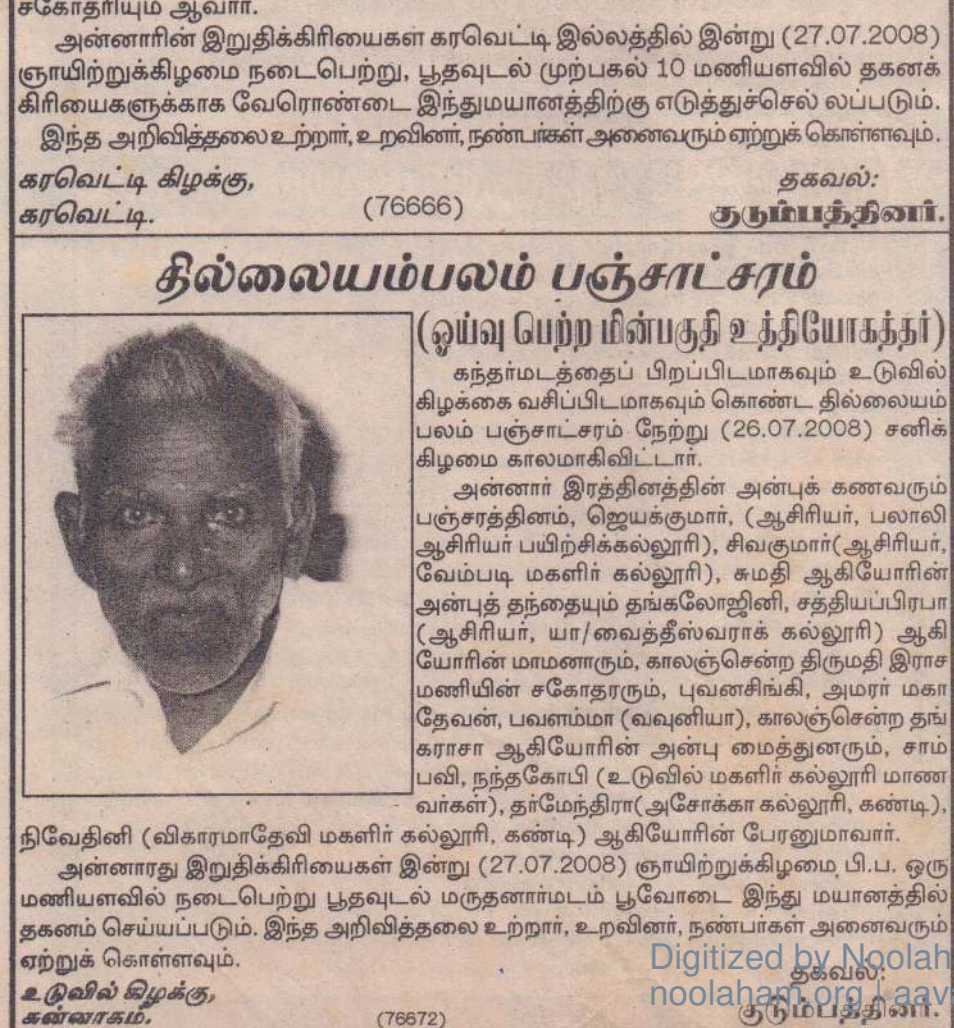 சகோதரியும் ஆவார்.
அன்னாரின் இறுதிக்கிரியைகள் கரவெட்டி இல்லத்தில் இன்று (27.07.2008)
ஞாயிற்றுக்கிழமை நடைபெற்று, பூதவுடல் முற்பகல் 10 மணியளவில் தகனக்
கிரியைகளுக்காக வேரொண்டை இந்துமயானத்திற்கு எடுத்துச்செல் லப்படும்.
இந்த அறிவித்தலை உற்றார், உறவினர், நண்பர்கள் அனைவரும் ஏற்றுக் கொள்ளவும்.
கரவெட்டி கிழக்கு,
கரவெட்டி.
(76666)
தகவல்:
குடும்பத்தினர்.
தில்லையம்பலம் பஞ்சாட்சரம்
(ஓய்வு பெற்ற மின்பகுதி உத்தியோகத்தர்)
கந்தர்மடத்தைப் பிறப்பிடமாகவும் உடுவில்
கிழக்கை வசிப்பிடமாகவும் கொண்ட தில்லையம்
பலம் பஞ்சாட்சரம் நேற்று (26.07.2008) சனிக்
கிழமை காலமாகிவிட்டார்.
அன்னார் இரத்தினத்தின் அன்புக் கணவரும்
பஞ்சரத்தினம், ஜெயக்குமார், (ஆசிரியர், பலாலி
ஆசிரியர் பயிற்சிக்கல்லூரி), சிவகுமார்(ஆசிரியர்,
வேம்படி மகளிர் கல்லூரி), சுமதி ஆகியோரின்
அன்புத் தந்தையும் தங்கலோஜினி, சத்தியப்பிரபா
(ஆசிரியர், யா/வைத்தீஸ்வராக் கல்லூரி) ஆகி
யோரின் மாமனாரும், காலஞ்சென்ற திருமதி இராச
மணியின் சகோதரரும், புவனசிங்கி, அமரர் மகா
தேவன், பவளம்மா (வவுனியா), காலஞ்சென்ற தங்
கராசா ஆகியோரின் அன்பு மைத்துனரும், சாம்
பவி, நந்தகோபி (உடுவில் மகளிர் கல்லூரி மாண
வர்கள்), தர்மேந்திரா(அசோக்கா கல்லூரி, கண்டி),
நிவேதினி (விகாரமாதேவி மகளிர் கல்லூரி, கண்டி) ஆகியோரின் பேரனுமாவார்.
அன்னாரது இறுதிக்கிரியைகள் இன்று (27.07.2008) ஞாயிற்றுக்கிழமை பி.ப. ஒரு
மணியளவில் நடைபெற்று பூதவுடல் மருதனார்மடம் பூவோடை இந்து மயானத்தில்
தகனம் செய்யப்படும். இந்த அறிவித்தலை உற்றார், உறவினர், நண்பர்கள் அனைவரும்
ஏற்றுக் கொள்ளவும்.
உடுவில் கிழக்கு,
சுன்னாகம்.
(76672)
தகவல்:
குடும்பத்தினர்.
Digitized by Noolah
noolaham.org | aav